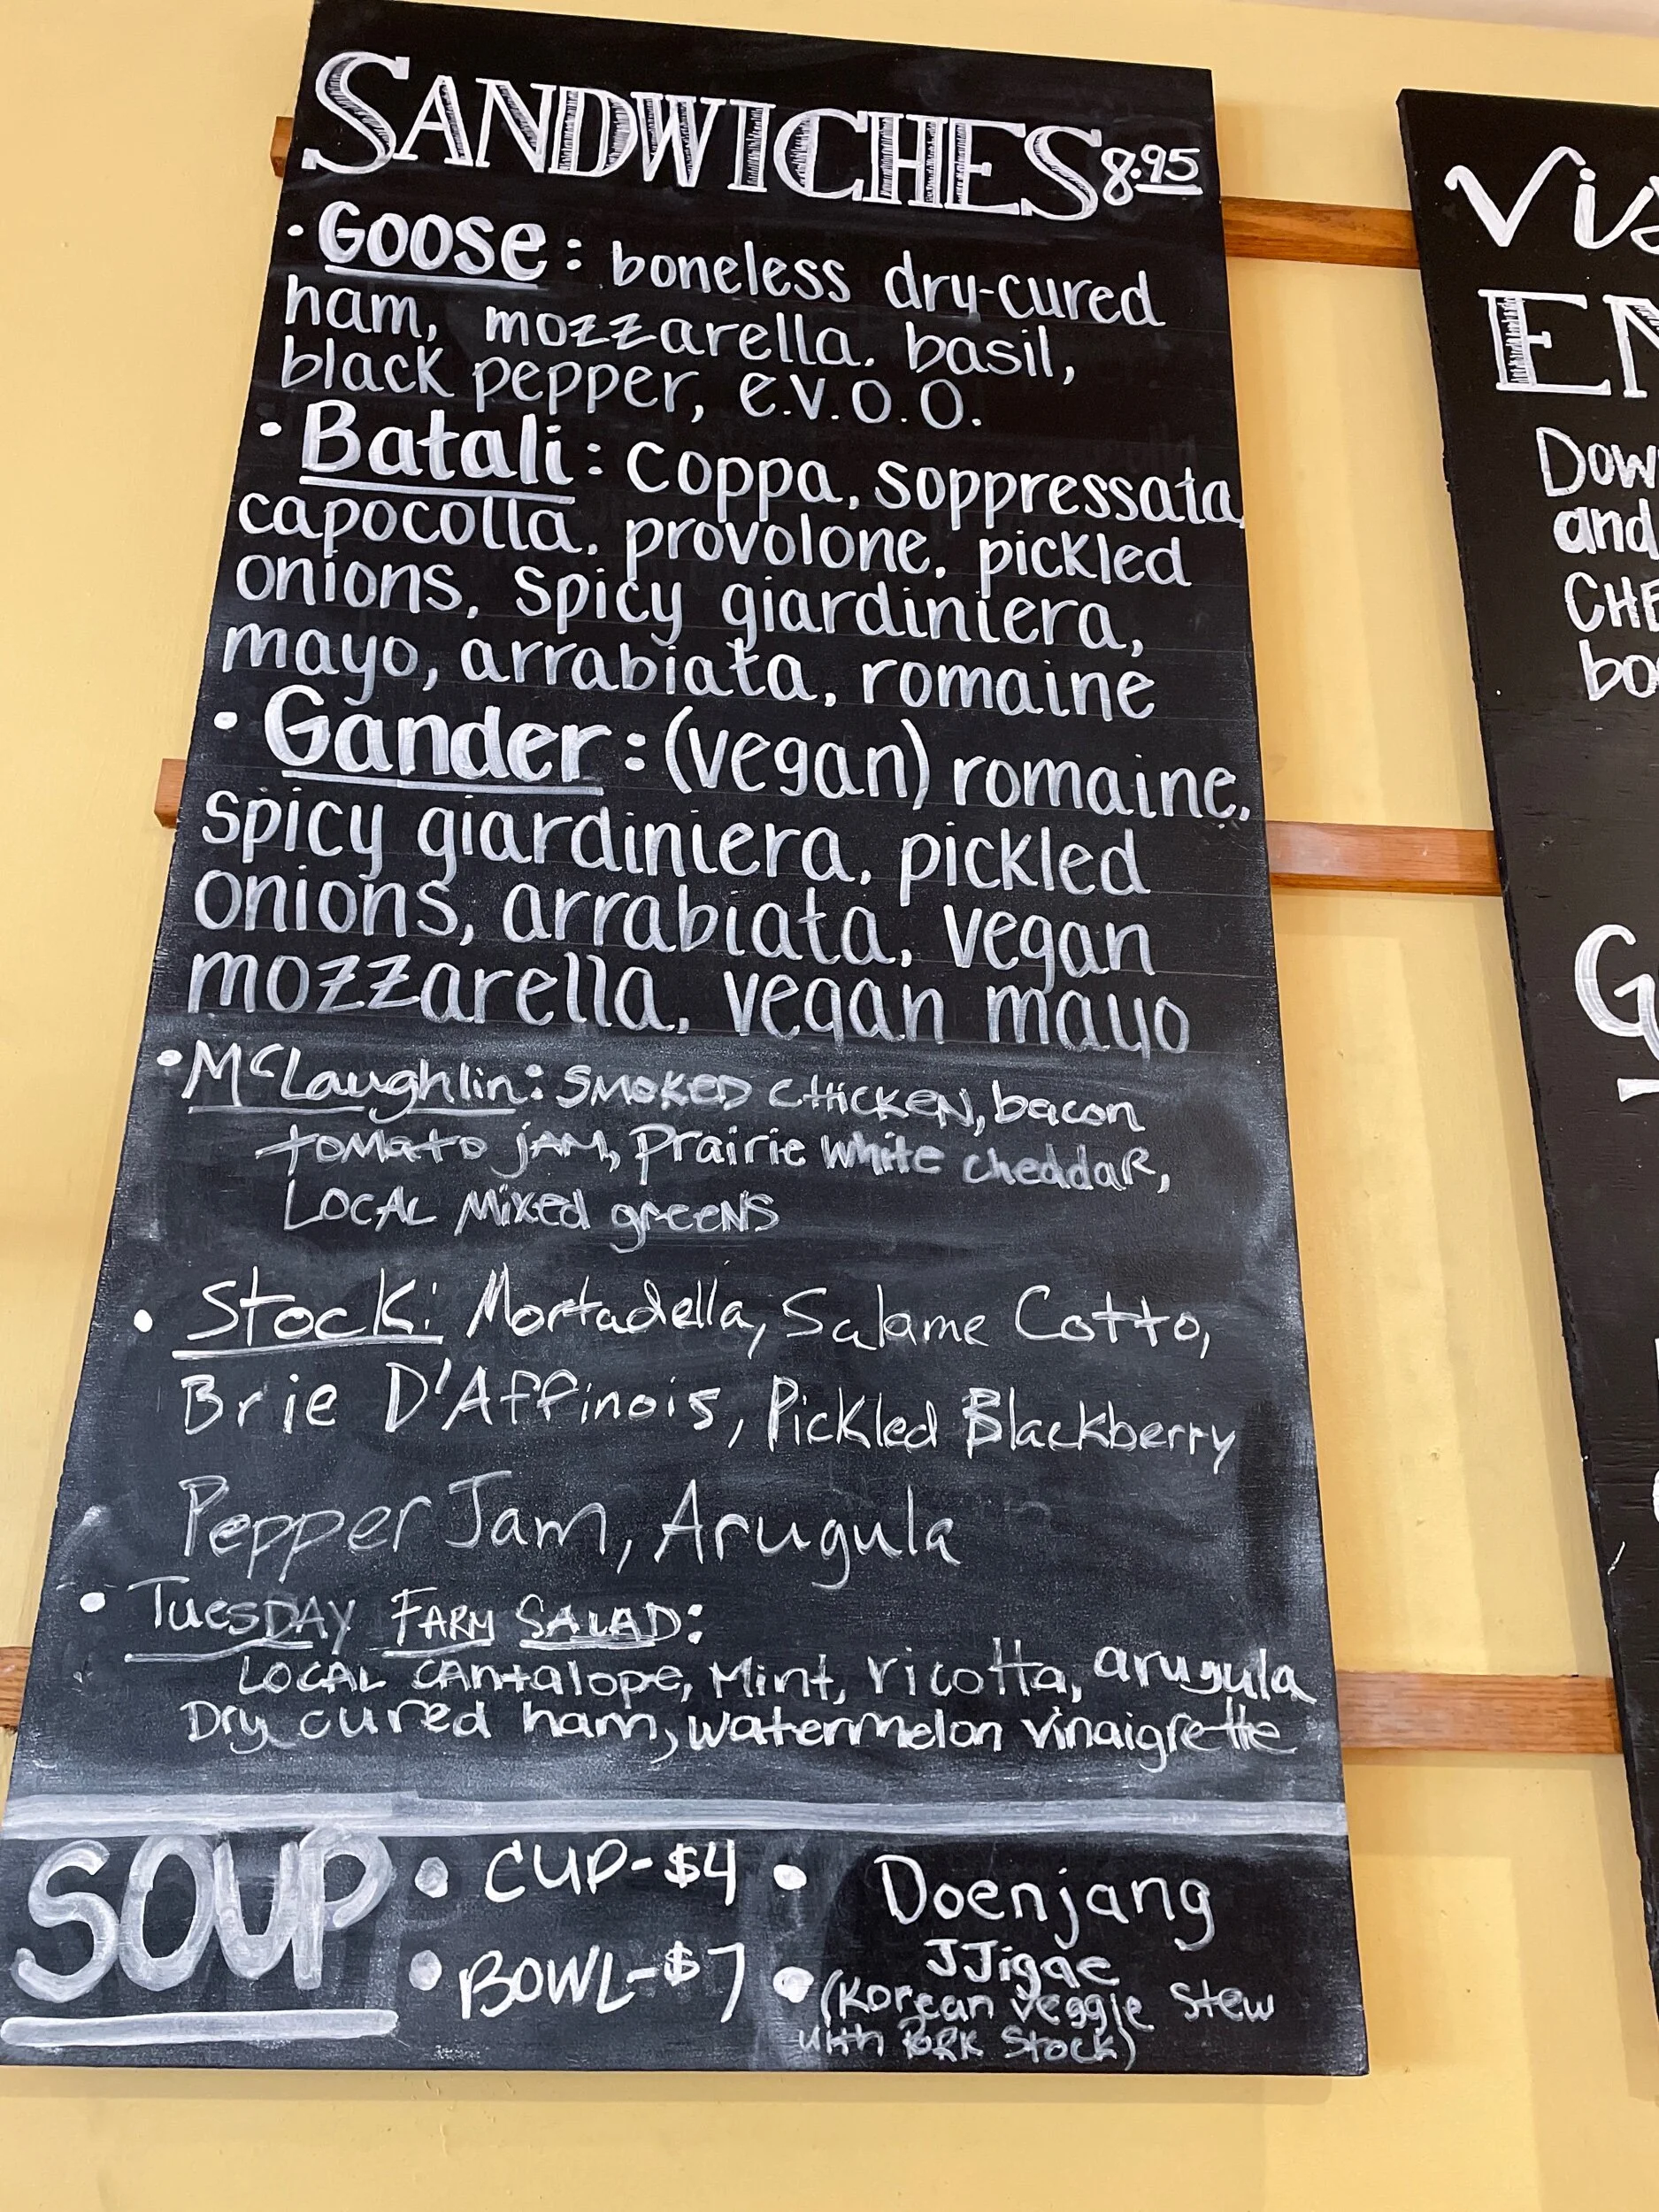 SANDWICHES 8.95
• Goose: boneless dry-cured
ham, mozzarella, basil,
black pepper, e.v.o.o.
• Batali: coppa, soppressata,
capocolla, provolone, pickled
onions, spicy giardiniera,
mayo, arrabiata, romaine
• Gander: (vegan) romaine,
spicy giardiniera, pickled
onions, arrabiata, vegan
mozzarella, vegan mayo
• McLaughlin: SMOKED CHICKEN, bacon
tomato jAM, Prairie white cheddaR,
LOCAL Mixed greeNS
• Stock: Mortadella, Salame Cotto,
Brie D'Affinois, Pickled Blackberry
Pepper Jam, Arugula
• TuesDAY FARM SALAD:
LOCAL CAntalope, Mint, ricotta, arugula
Dry cured ham, watermelon vinaigrette
SOUP • CUP-$4 • Doenjang
• BOWL-$7 • JJigae
(Korean veggie stew
with PORK Stock)
EN
and